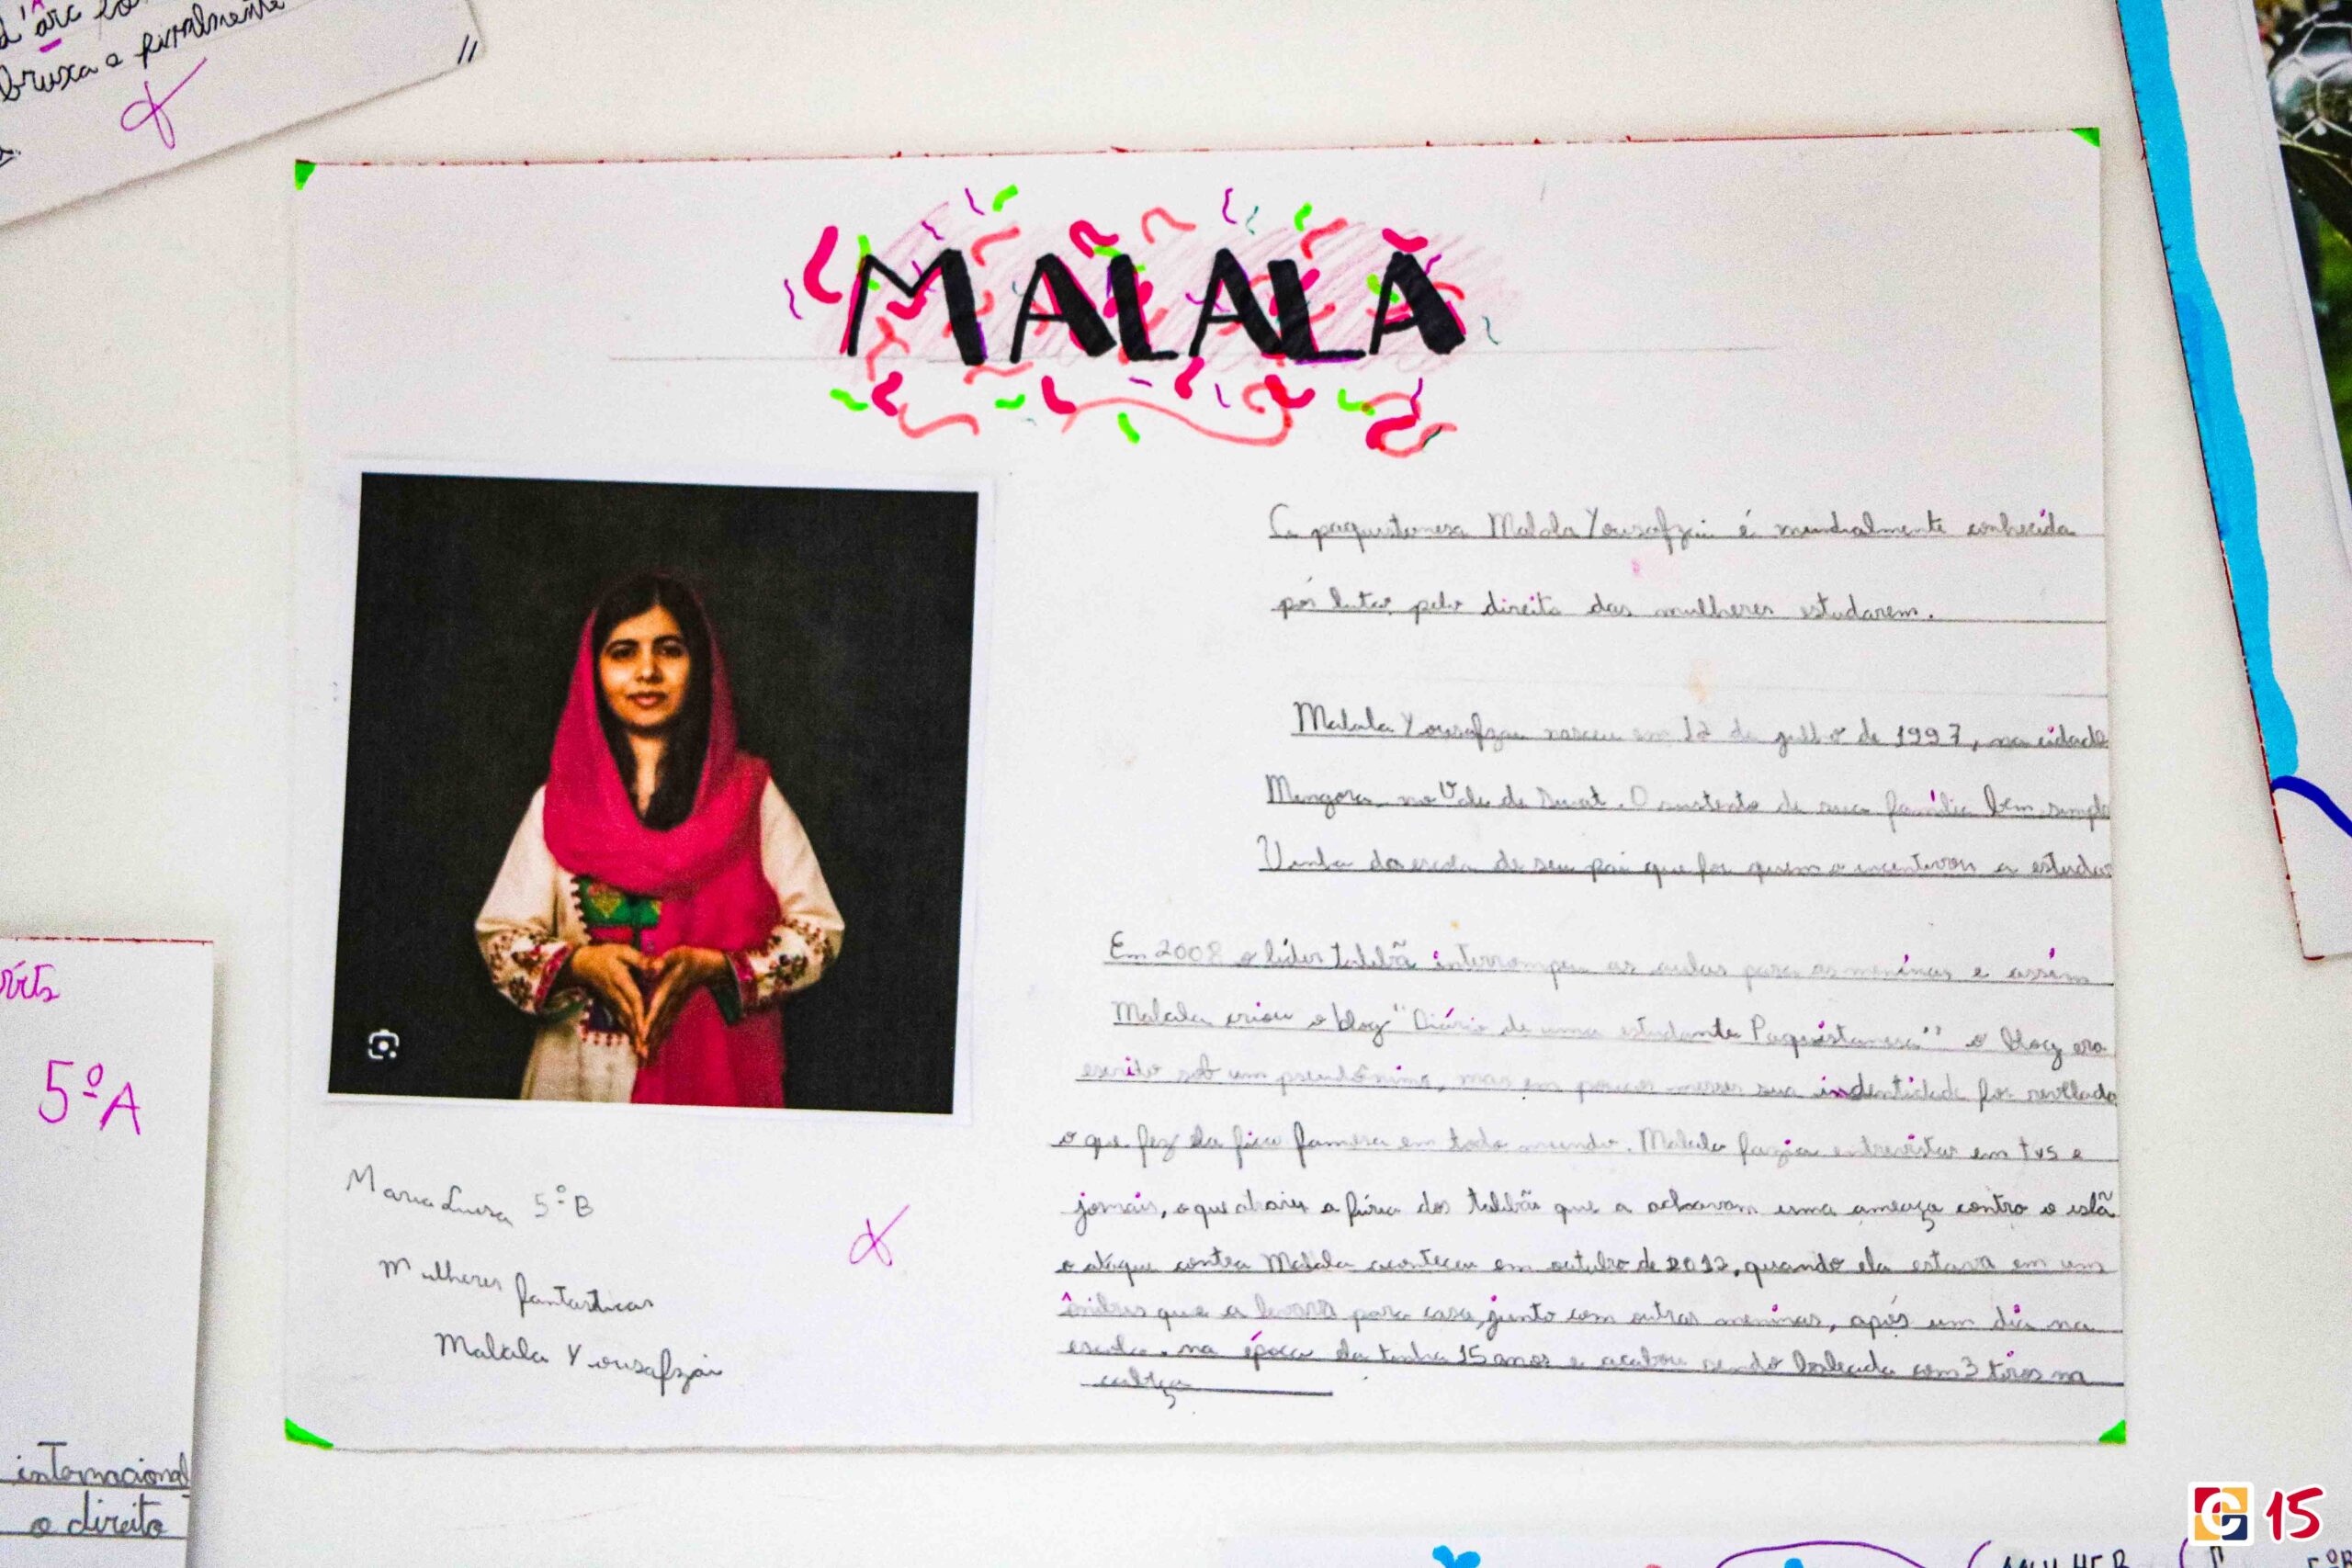 d'arc
bruxa e finalmente
MALALA
A paquistanesa Malala Yousafzai é mundialmente conhecida
por lutar pelo direito das mulheres estudarem.
Malala Yousafzai nasceu em 12 de julho de 1997, na cidade
Mingora no Vale de Swat. O sustento de sua família bem simple
Vinha da escola de seu pai que foi quem o incentivou a estudar
Em 2008 o líder talibã interrompeu as aulas para as meninas e assim
Malala criou o blog "Diário de uma estudante Paquistanesa" o blog era
escrito sob um pseudônimo, mas em poucos meses sua indentidade foi revelada
o que fez ela ficar famosa em todo mundo. Malala fazia entrevistas em tvs e
jornais, o que atraiu a fúria dos talibãs que a achavam uma ameaça contra o islã
o ataque contra Malala aconteceu em outubro de 2012, quando ela estava em um
ônibus que a levava para casa, junto com outras meninas, após um dia na
escola. na época ela tinha 15 anos e acabou sendo baleada com 3 tiros na
cabeça
Maria Luisa 5º B
Mulheres fantasticas
Malala Yousafzai
5ºA
internacional
o direito
MULHER
C 15